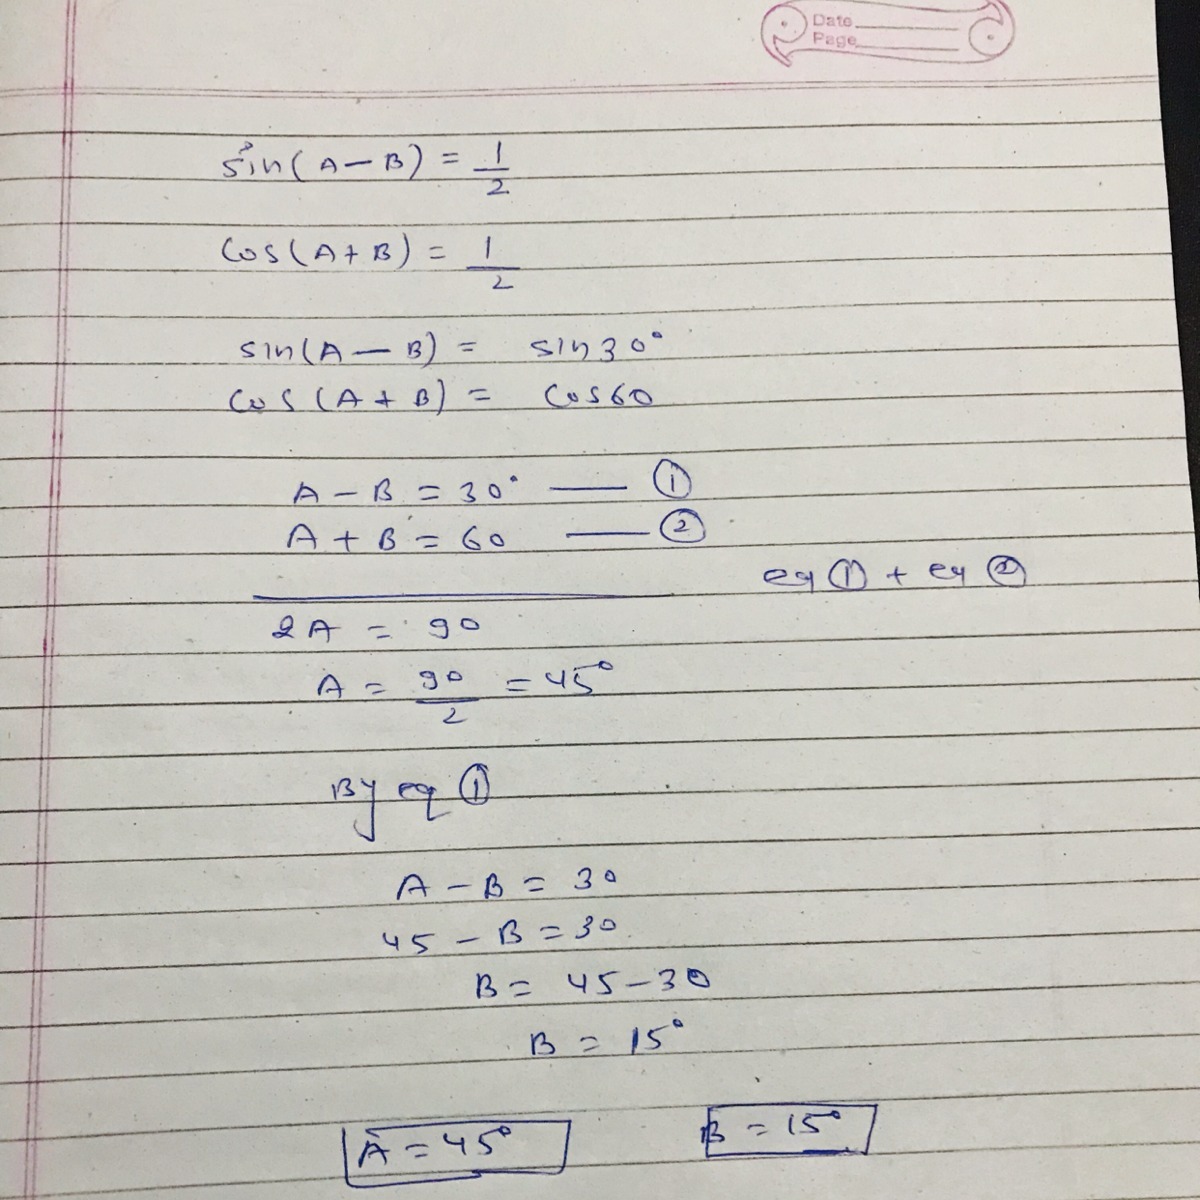 Date
Page
sin(A-B) = 1/2
cos(A+B) = 1/2
sin(A-B) = sin30°
cos(A+B) = cos60
A-B = 30° — ①
A+B = 60 — ②
eq ① + eq ②
2A = 90
A = 90/2 = 45°
By eq ①
A-B = 30
45-B = 30
B = 45-30
B = 15°
A = 45° B = 15°